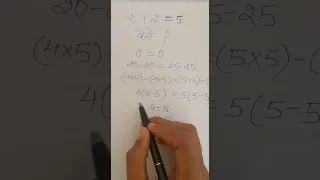 2 + 2 = 5
करो ?
0 = 0
20-20 = 25-25
(4x5)-(4x5) = (5x5)-(
4(5-5) = 5(5-5
4=5